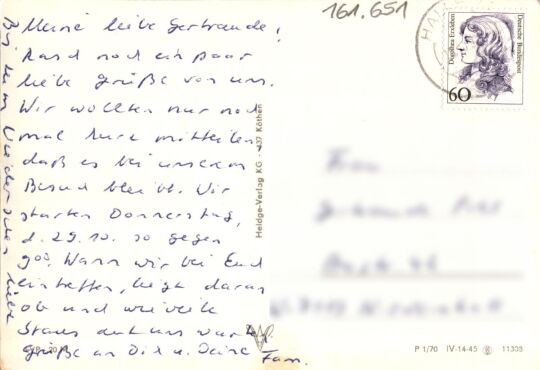 Meine liebe Gertraude,
Rasch noch ein paar
liebe Grüße von uns.
Wir wollten nur noch
mal kurz mitteilen
daß es bei unserem
Besuch bleibt. Wir
starten Donnerstag,
d. 29.10. so gegen
9⁰⁰. Wann wir bei Euch
eintreffen, liegt daran
ob und wieviele
Staus auf uns warten.
Grüße an Dich u. Deine Fam.
Bis zum Wiedersehen liebe
161.651
Dorothea Erxleben
Deutsche Bundespost
60
Heldge-Verlag KG - 437 Köthen
P 1/70 IV-14-45 11303